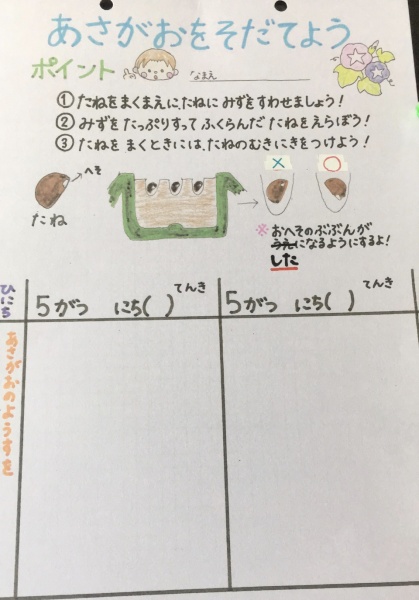 あさがおをそだてよう
ポイント
なまえ
① たねをまくまえに、たねに みずをすわせましょう!
② みずを たっぷりすって ふくらんだ たねをえらぼう!
③ たねを まくときには、たねのむきにきをつけよう!
へそ
たね
× ○
※ おへそのぶぶんが
うえになるようにするよ!
した
ひにち
5がつ にち( ) てんき
5がつ にち( ) てんき
あさがおのようすを